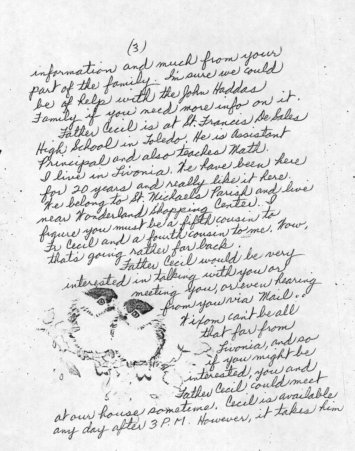 (3)
information and much from your
part of the family. I'm sure we could
be of help with the John Haddas
Family if you need more info on it.
Father Cecil is at St. Francis De Sales
High School in Toledo. He is Assistant
Principal and also teaches Math.
I live in Livonia. We have been here
for 20 years and really like it here.
We belong to St Michaels Parish and live
near Wonderland Shopping Center. I
figure you must be a fifth cousin to
Fr Cecil and a fourth cousin to me. Wow,
that's going rather far back.
Father Cecil would be very
interested in talking with you or
meeting you, or even hearing
from you via Mail.
Wixom can't be all
that far from
Livonia, and so
if you might be
interested, you and
Father Cecil could meet
at our house sometime. Cecil is available
any day after 3 P.M. However, it takes him